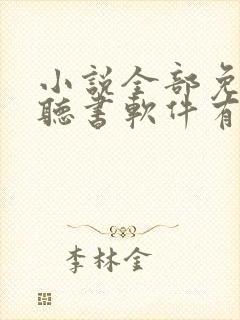 小説全部免
聽書軟件有
李林金